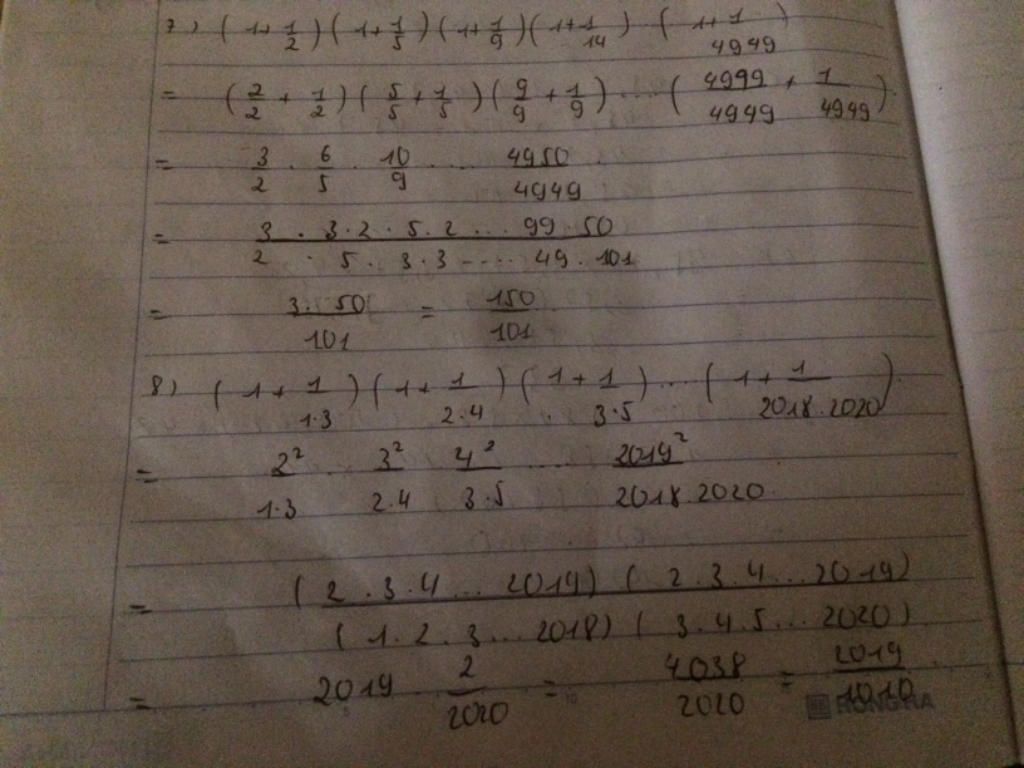 7) (1+1/2)(1+1/5)(1+1/9)(1+1/14)...(1+1/4949)
= (2/2+1/2)(5/5+1/5)(9/9+1/9)...(4999/4949+1/4949)
= 3/2 . 6/5 . 10/9 ... 4950/4949
= 3 . 3.2 . 5.2 ... 99.50 / 2 . 5 . 3.3 ---- 49.101
= 3.50/101 = 150/101
8) (1+1/1.3)(1+1/2.4)(1+1/3.5)...(1+1/2018.2020)
= 2²/1.3 . 3²/2.4 . 4²/3.5 ... 2019²/2018.2020
= (2.3.4...2019)(2.3.4...2019) / (1.2.3...2018)(3.4.5...2020)
= 2019 . 2/2020 = 4038/2020 = 2019/1010
HONG HA